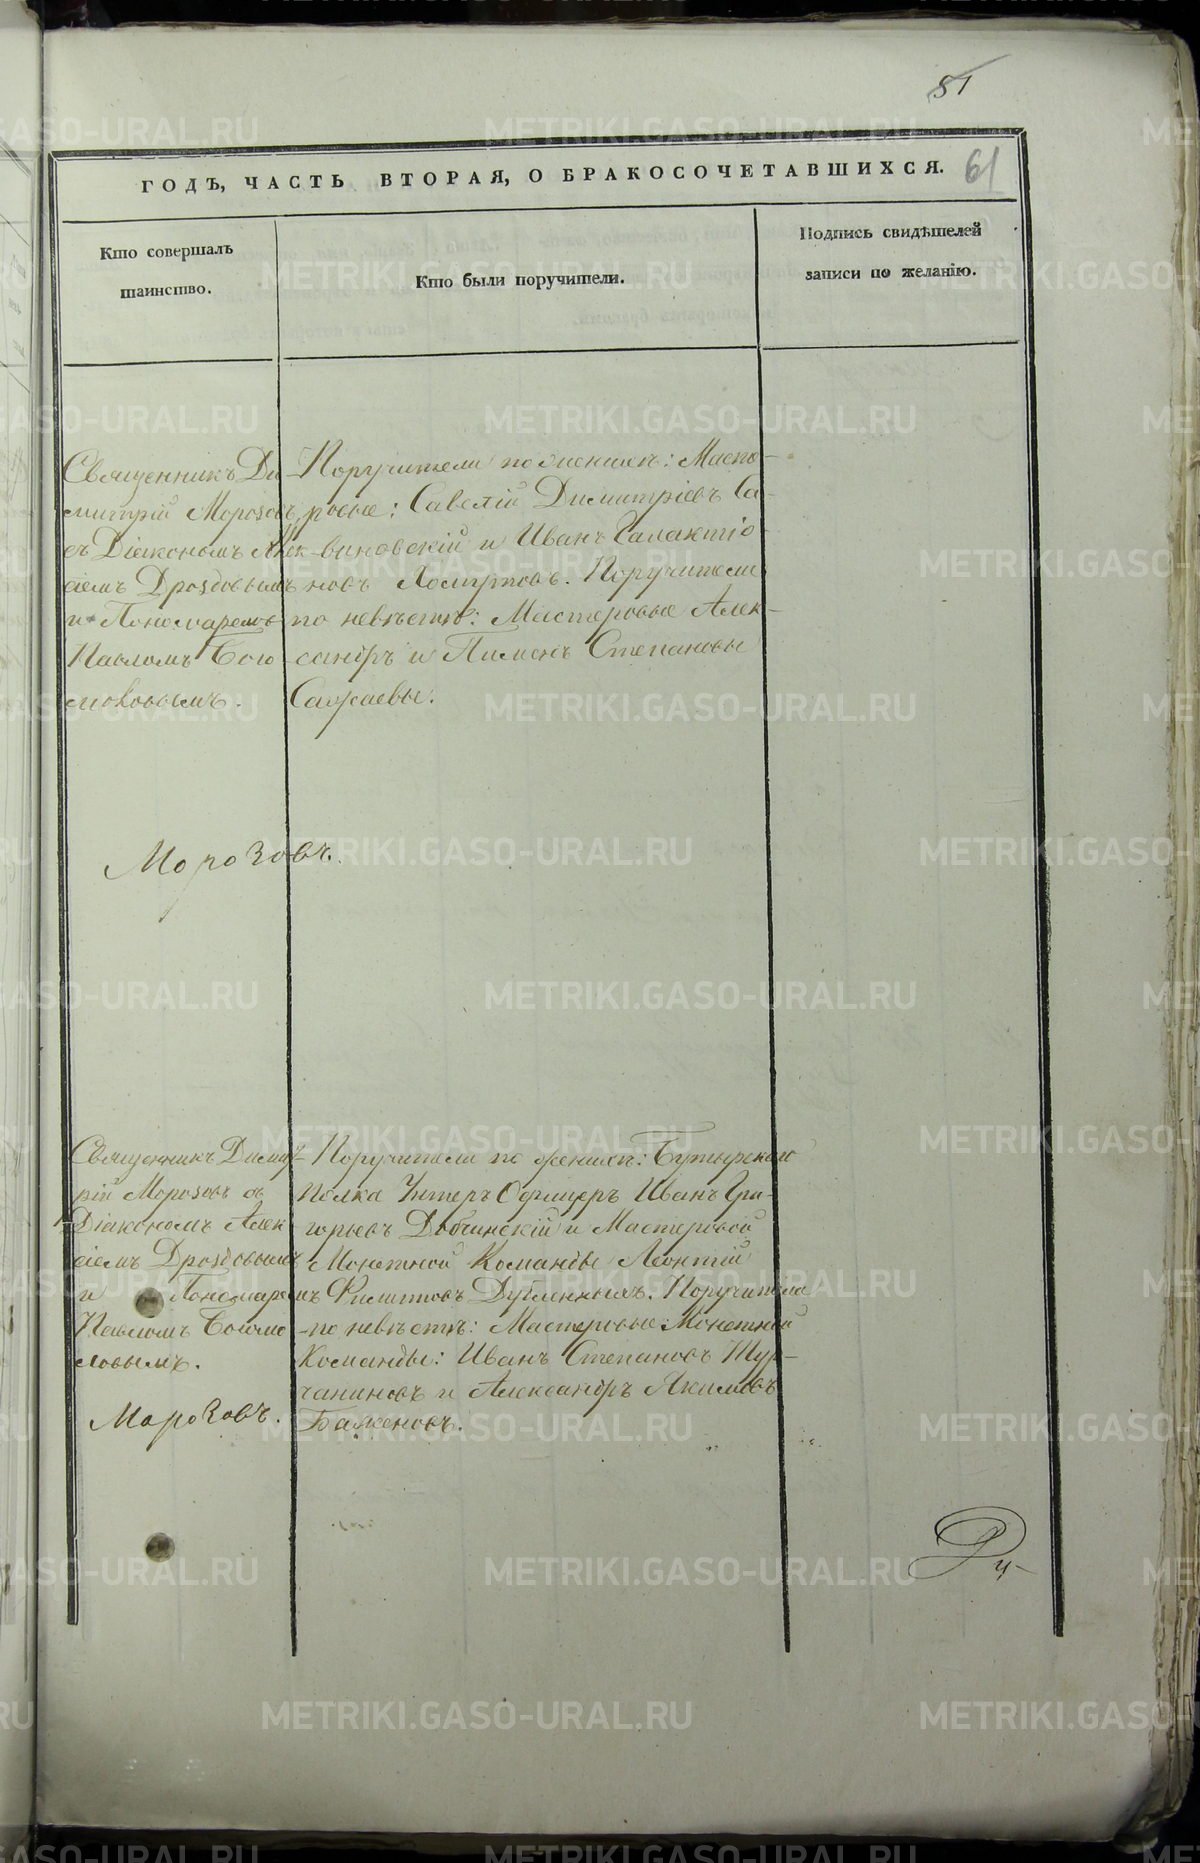 81
61
ГОДЪ, ЧАСТЬ ВТОРАЯ, О БРАКОСОЧЕТАВШИХСЯ.
Кто совершалъ
таинство.
Кто были поручители.
Подпись свидѣтелей
записи по желанію.
Священникъ Ди-
митрій Морозовъ
съ Діакономъ Алек-
сіемъ Дроздовымъ
и Пономаремъ
Павломъ Бого-
словымъ.
Поручители по женихѣ: Масте-
ровые: Савелій Димитріевъ Са-
виновскій и Иванъ Галактіо-
новъ. Поручители
по невѣстѣ: Мастеровые Алек-
сандръ и Пименъ Степановы
Морозовъ.
Священникъ Димит-
рій Морозовъ съ
Діакономъ Алек-
сіемъ Дроздовымъ
и Пономаремъ
Павломъ Богос-
ловымъ.
Морозовъ.
Поручители по женихѣ: Бутырскаго
Полка Унтеръ Офицеръ Иванъ Гри-
горьевъ Добчинскій и Мастеровой
Монетной Команды Леонтій
Филиповъ Дубленныхъ. Поручители
по невѣстѣ: Мастеровые Монетной
Команды: Иванъ Степановъ Тур-
чаниновъ и Александръ Якимовъ
Баженовъ.
METRIKI.GASO-URAL.RU